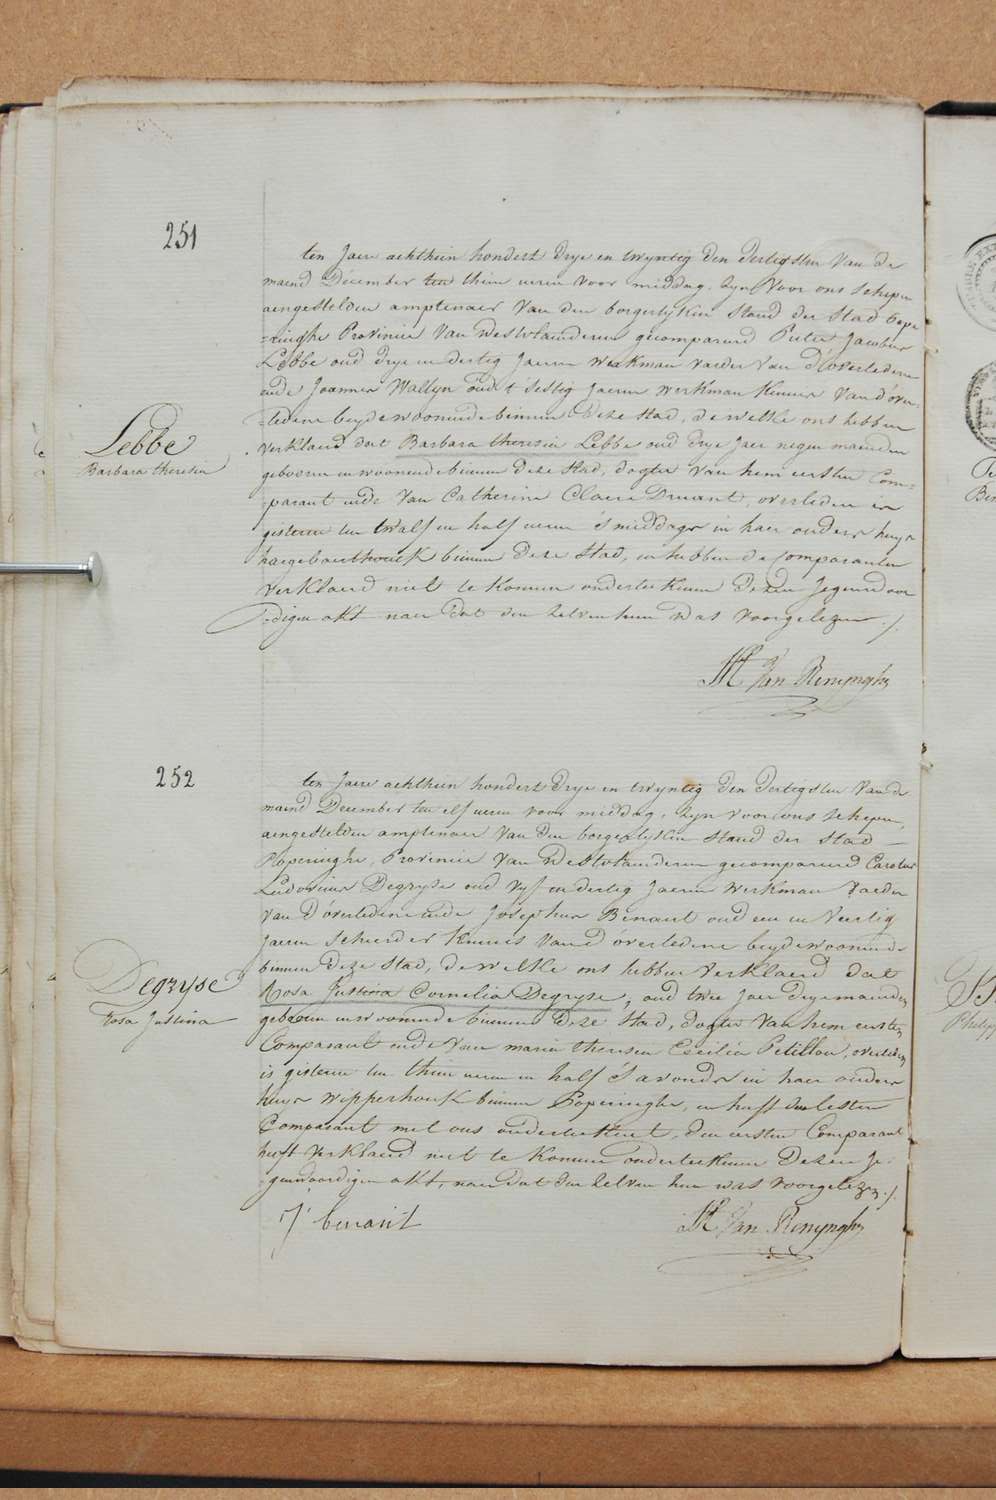 251
ten Jaere achthien hondert drye en twyntig den dertigsten van de
maend December ten thien ueren voor middag, zyn voor ons schepen
aengestelden amptenaer van den borgerlyken stand der stad Pope
=ringhe Provincie van Westvlaenderen gecompareerd Pieter Jacobus
Lebbe oud drye en dertig Jaeren werkman vaeder van d'overledene
ende Joannes Wallyn oud t'sestig Jaeren werkman kennis van d'over=
=ledene beyde woonende binnen deze stad, de welke ons hebben
Lebbe
Barbara theresia
verklaerd dat Barbara theresia Lebbe oud drye Jaer negen maenden
geboren en woonende binnen deze stad, dogter van hem eersten Com=
=parant ende van Catherina Clara Druant, overleden is
gisteren ten twalf en half ueren s'middags in haer ouders huys
binnen deze stad, en hebben de Comparanten
verklaerd niet te konnen onderteekenen dezen Jegenwoor
=digen akt naer dat den zelven hun was voorgelezen ./.
Van Renynghe
252
ten Jaere achthien hondert drye en twyntig den dertigsten van de
maend December ten elf ueren voor middag, zyn voor ons schepen,
aengestelden amptenaer van den borgerlyken stand der stad
Poperinghe, Provincie van Westvlaenderen gecompareerd Carolus
Ludovicus Degryse oud vyf en dertig Jaeren werkman vaeder
van d'overledene ende Josephus Benaut oud een en veertig
Jaeren kennis van d'overledene beyde woonende
binnen deze stad, de welke ons hebben verklaerd dat
Degryse
rosa Justina
Rosa Justina Cornelia Degryse, oud twee Jaer drye maenden
geboren en woonende binnen deze stad, dogter van hem eersten
Comparant ende van maria theresia Cecilia Petillon, overleden
is gisteren ten thien ueren en half s'avonds in haer ouders
huys wipperhoek binnen Poperinghe, en heeft den lesten
Comparant met ons onderteekent, den eersten Comparant
heeft verklaerd niet te konnen onderteekenen dezen Je=
=genwoordigen akt, naer dat den zelven hun was voorgelezen ./.
J benaut
Van Renynghe